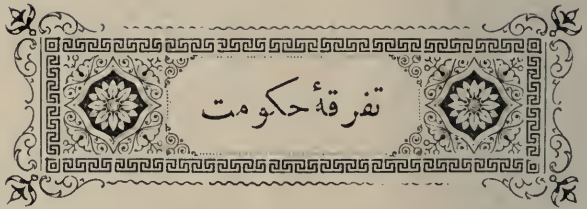 تفرقۀ حکومت